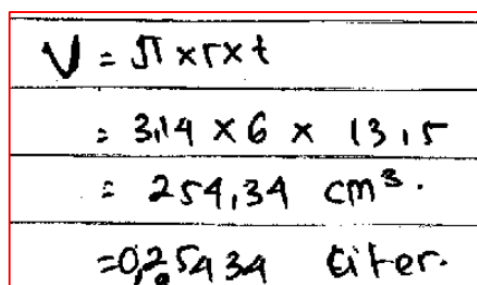 V = π x r x t
= 3,14 x 6 x 13,5
= 254,34 cm³.
= 0,25434 liter.